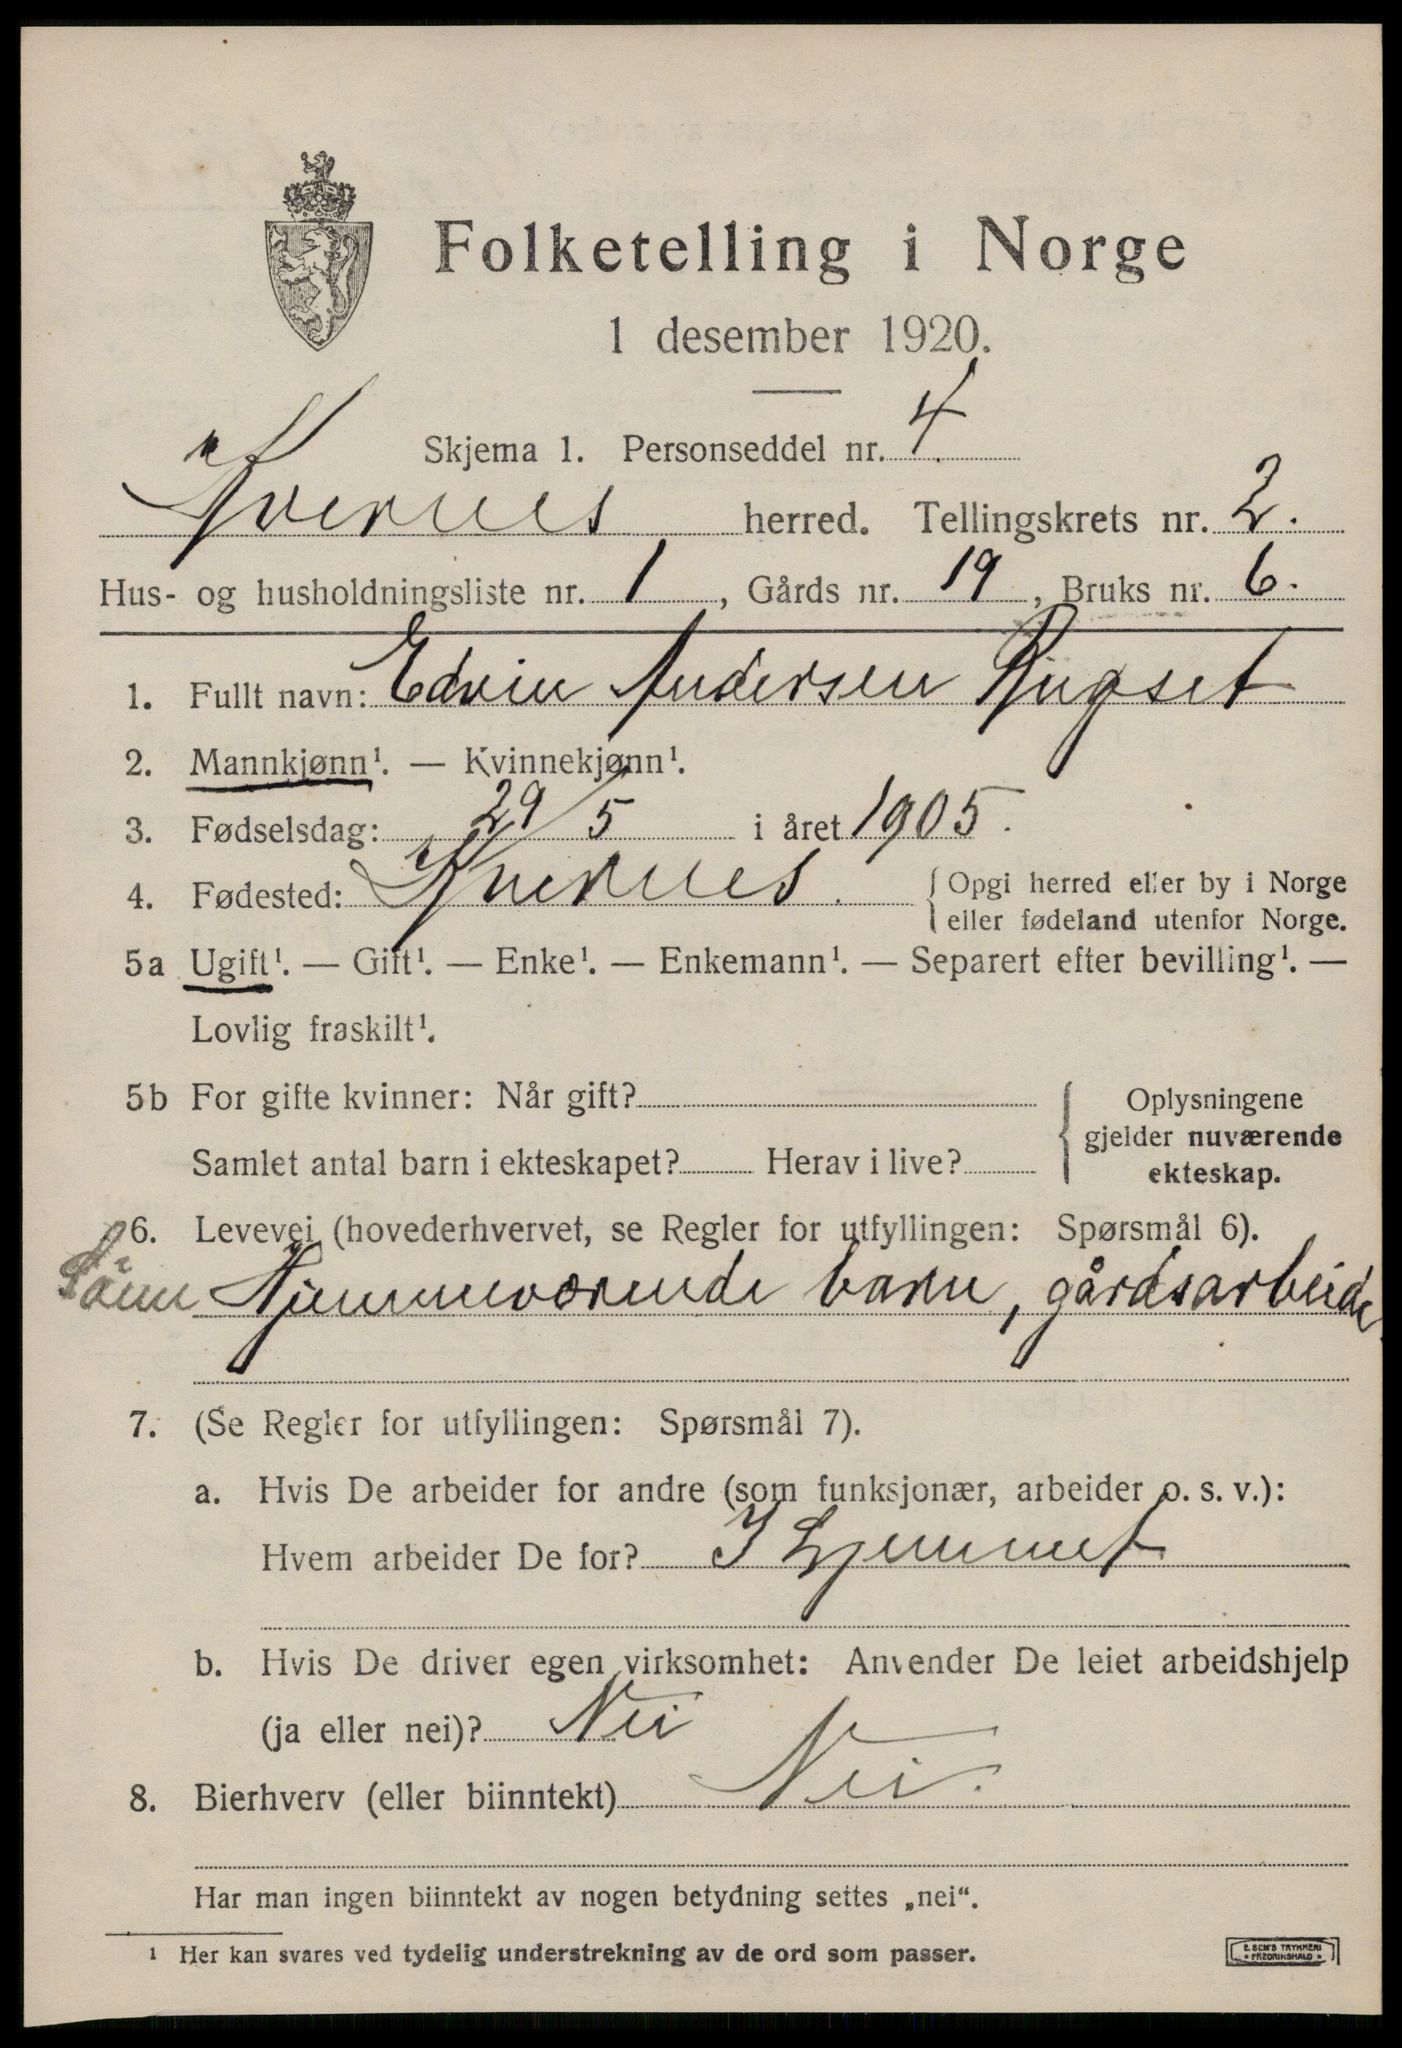 Folketelling i Norge
1 desember 1920.
Skjema 1. Personseddel nr. 4.
Kvernes herred. Tellingskrets nr. 2.
Hus- og husholdningsliste nr. 1, Gårds nr. 19, Bruks nr. 6.
1. Fullt navn: Edvin Andersen Rugset
2. Mannkjønn¹. — Kvinnekjønn¹.
3. Fødselsdag: 29/5 i året 1905.
4. Fødested: Kvernes. {Opgi herred eller by i Norge
eller fødeland utenfor Norge.
5a Ugift¹. — Gift¹. — Enke¹. — Enkemann¹. — Separert efter bevilling¹. —
Lovlig fraskilt¹.
5b For gifte kvinner: Når gift?
Samlet antal barn i ekteskapet? Herav i live?
{Oplysningene
gjelder nuværende
ekteskap.
6. Levevei (hovederhvervet, se Regler for utfyllingen: Spørsmål 6).
Sønn Hjemmeværende barn, gårdsarbeide
7. (Se Regler for utfyllingen: Spørsmål 7).
a. Hvis De arbeider for andre (som funksjonær, arbeider o. s. v.):
Hvem arbeider De for? I hjemmet
b. Hvis De driver egen virksomhet: Anvender De leiet arbeidshjelp
(ja eller nei)? Nei
8. Bierhverv (eller biinntekt) Nei.
Har man ingen biinntekt av nogen betydning settes „nei“.
¹ Her kan svares ved tydelig understrekning av de ord som passer.
E. SEM'S TRYKKERI
• FREDRIKSHALD •